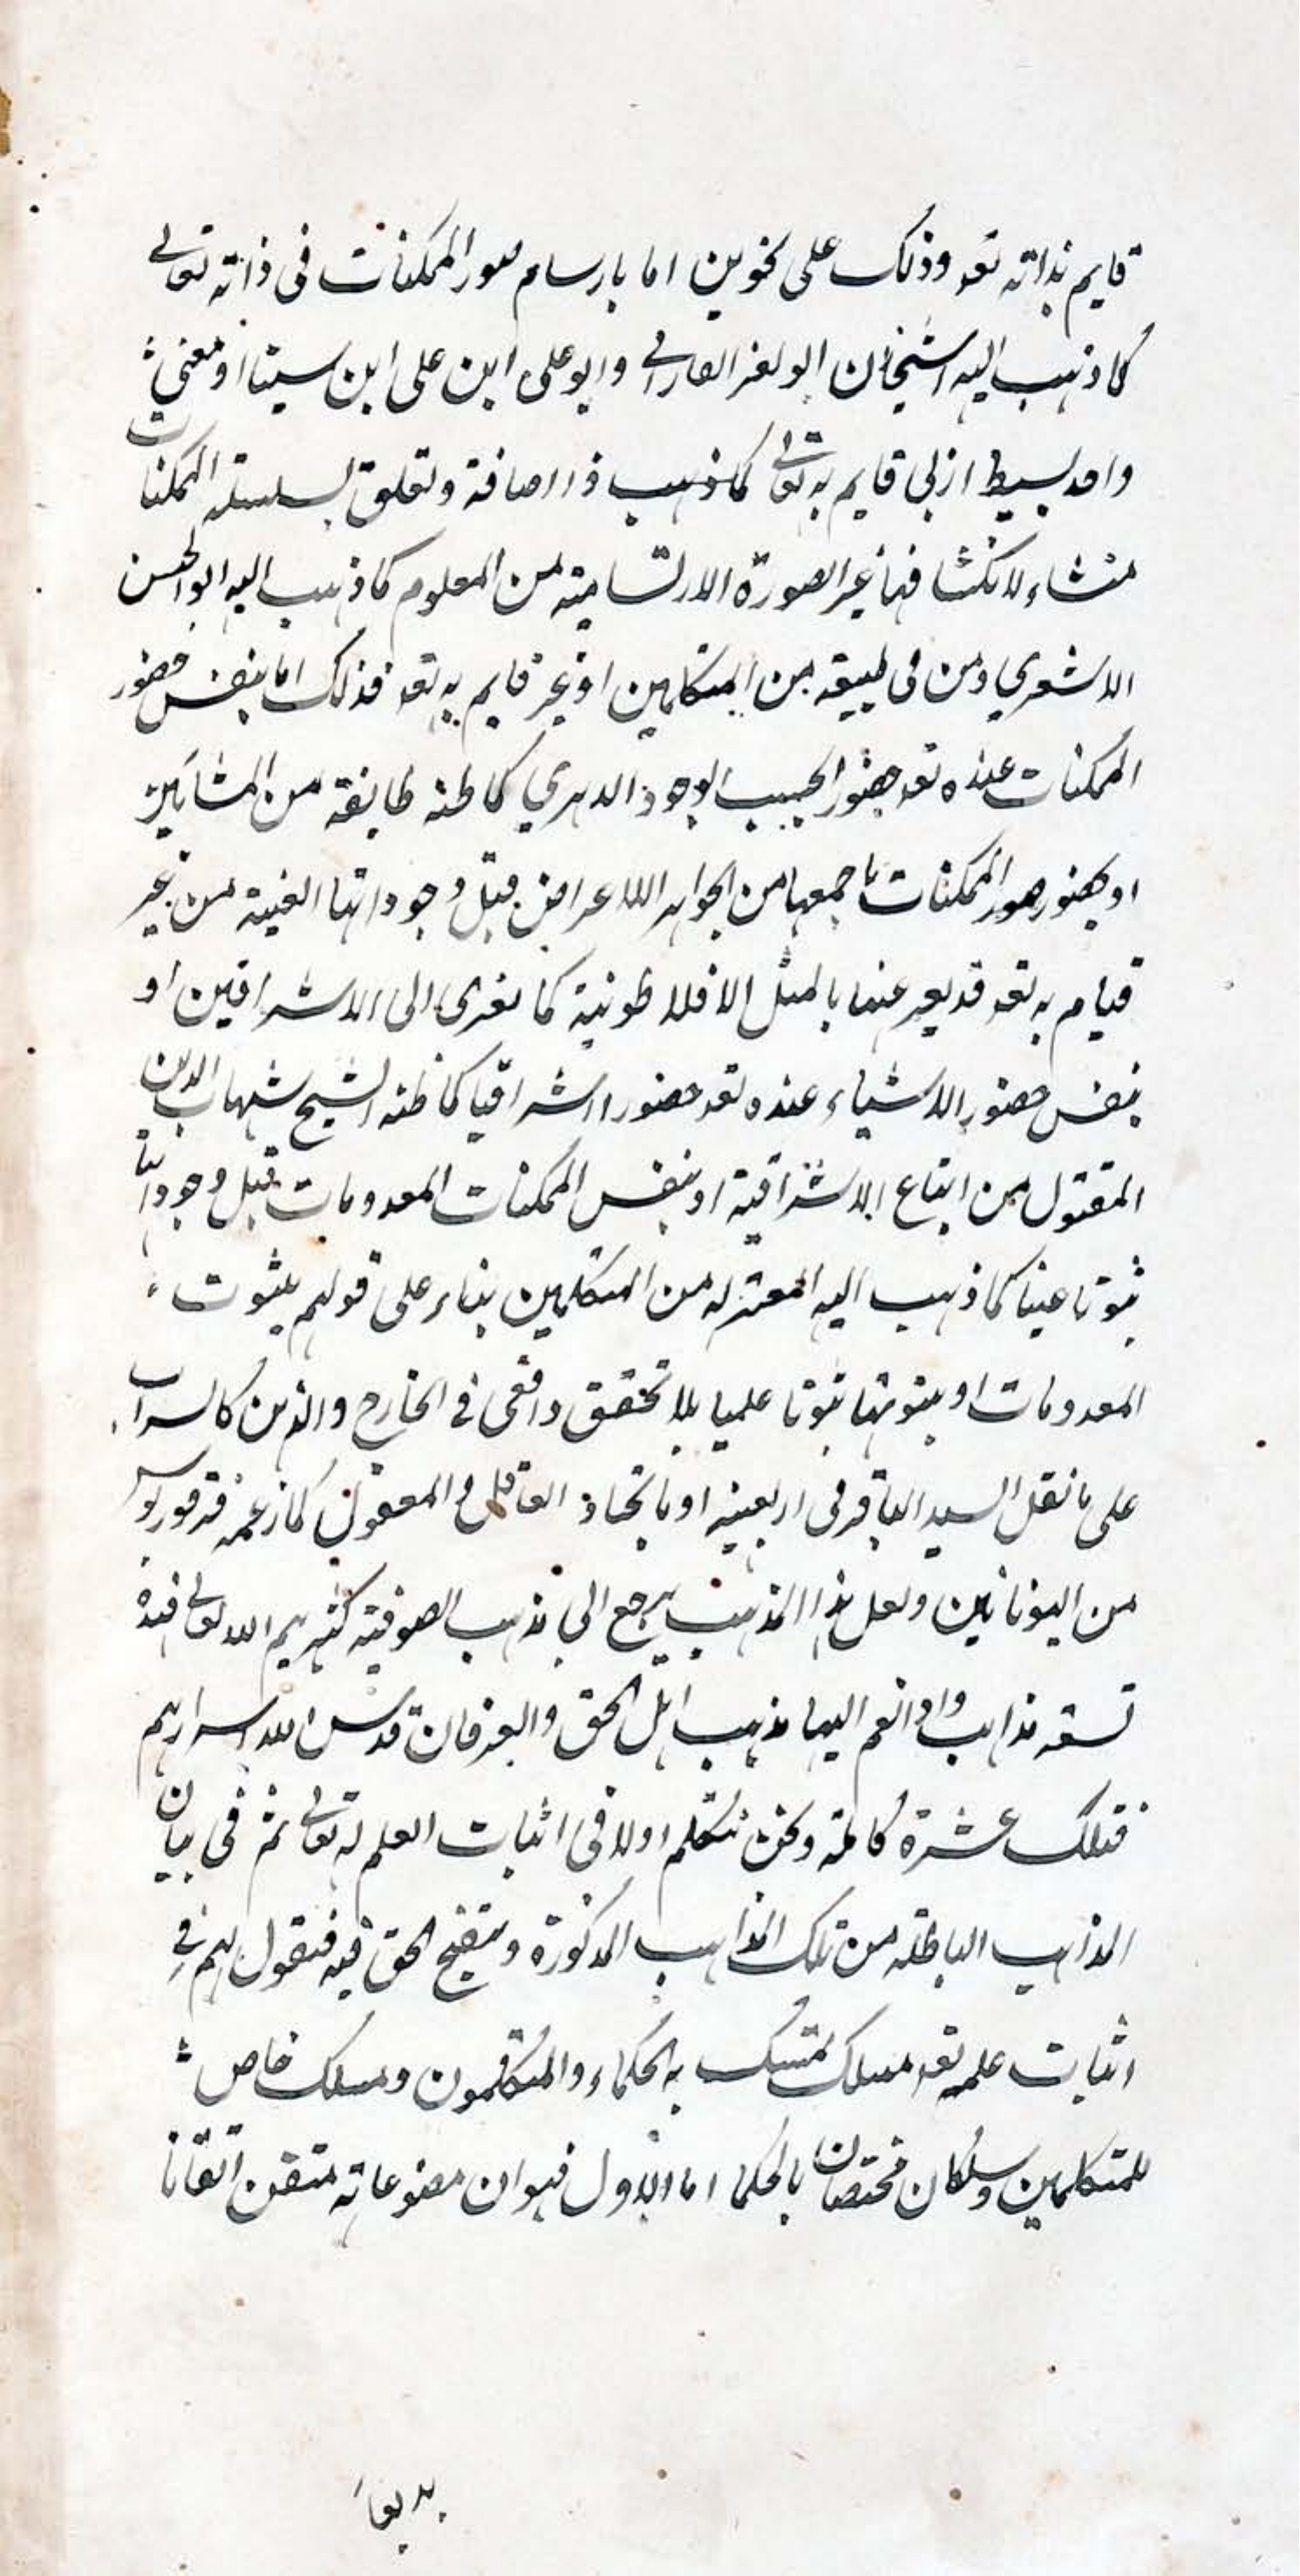 قايم بذاته تعه وذلك على نحوين اما بارسام صور الممكنات فى ذاته تعالى
كما ذهب اليه الشيخان ابو نصر الفارابى وابو على ابن على ابن سينا او معنى
واحد بسيط ازلي قايم به تعالى كما ذهب ذا اضافة وتعلق بسلسلة الممكنات
منشاء لانكشافها غير الصورة الارتسامية من المعلوم كما ذهب اليه ابو الحسن
الاشعري ومن فى طبيقه من المتكلمين او غير قايم به تعه فذلك اما بنفس حضور
الممكنات عنده تعه حضورا بحسب الوجود الدهري كما ظنه طايفة من المشائين
او بحضور صور الممكنات باجمعها من الجواهر الاعراض قبل وجوداتها العينية من غير
قيام به تعه قد يعبر عنها بالمثل الافلاطونية كما تعزى الى الاشراقين او
بنفس حضور الاشياء عنده تعه حضورا اشراقيا كما ظنه الشيخ شهاب الدين
المقتول من اتباع الاشراقية او بنفس الممكنات المعدومات قبل وجوداتها
ثبوتا عينا كما ذهب اليه المعتزله من المتكلمين بناء على قولهم بثبوت
المعدومات او بثبوتها ثبوتا علميا بلا تحقق واقعى فى الخارج والذهن كالسراب
على ما نقل السيد الباقر فى اربعينه او باتحاد العاقل والمعقول كما زعمه فرفوريوس
من اليونانين ولعل هذا المذهب يرجع الى مذهب الصوفية كثرهم الله تعالى فهذه
تسعة مذاهب واذا انضم اليها مذهب اهل الحق والعرفان قدس الله اسرارهم
فتلك عشرة كاملة ونحن نتكلم اولا فى اثبات العلم له تعالى ثم فى بيان
المذاهب الباطلة من تلك المذاهب المذكورة وتنقيح الحق فيه فنقول لهم فى
اثبات علمه تعه مسلك تمسك به الحكماء والمتكلمون ومسلك خاص
للمتكلمين ومسلكان مختصان بالحكما اما الاول فهو ان مصنوعاته متقن اتقانا
بديعا